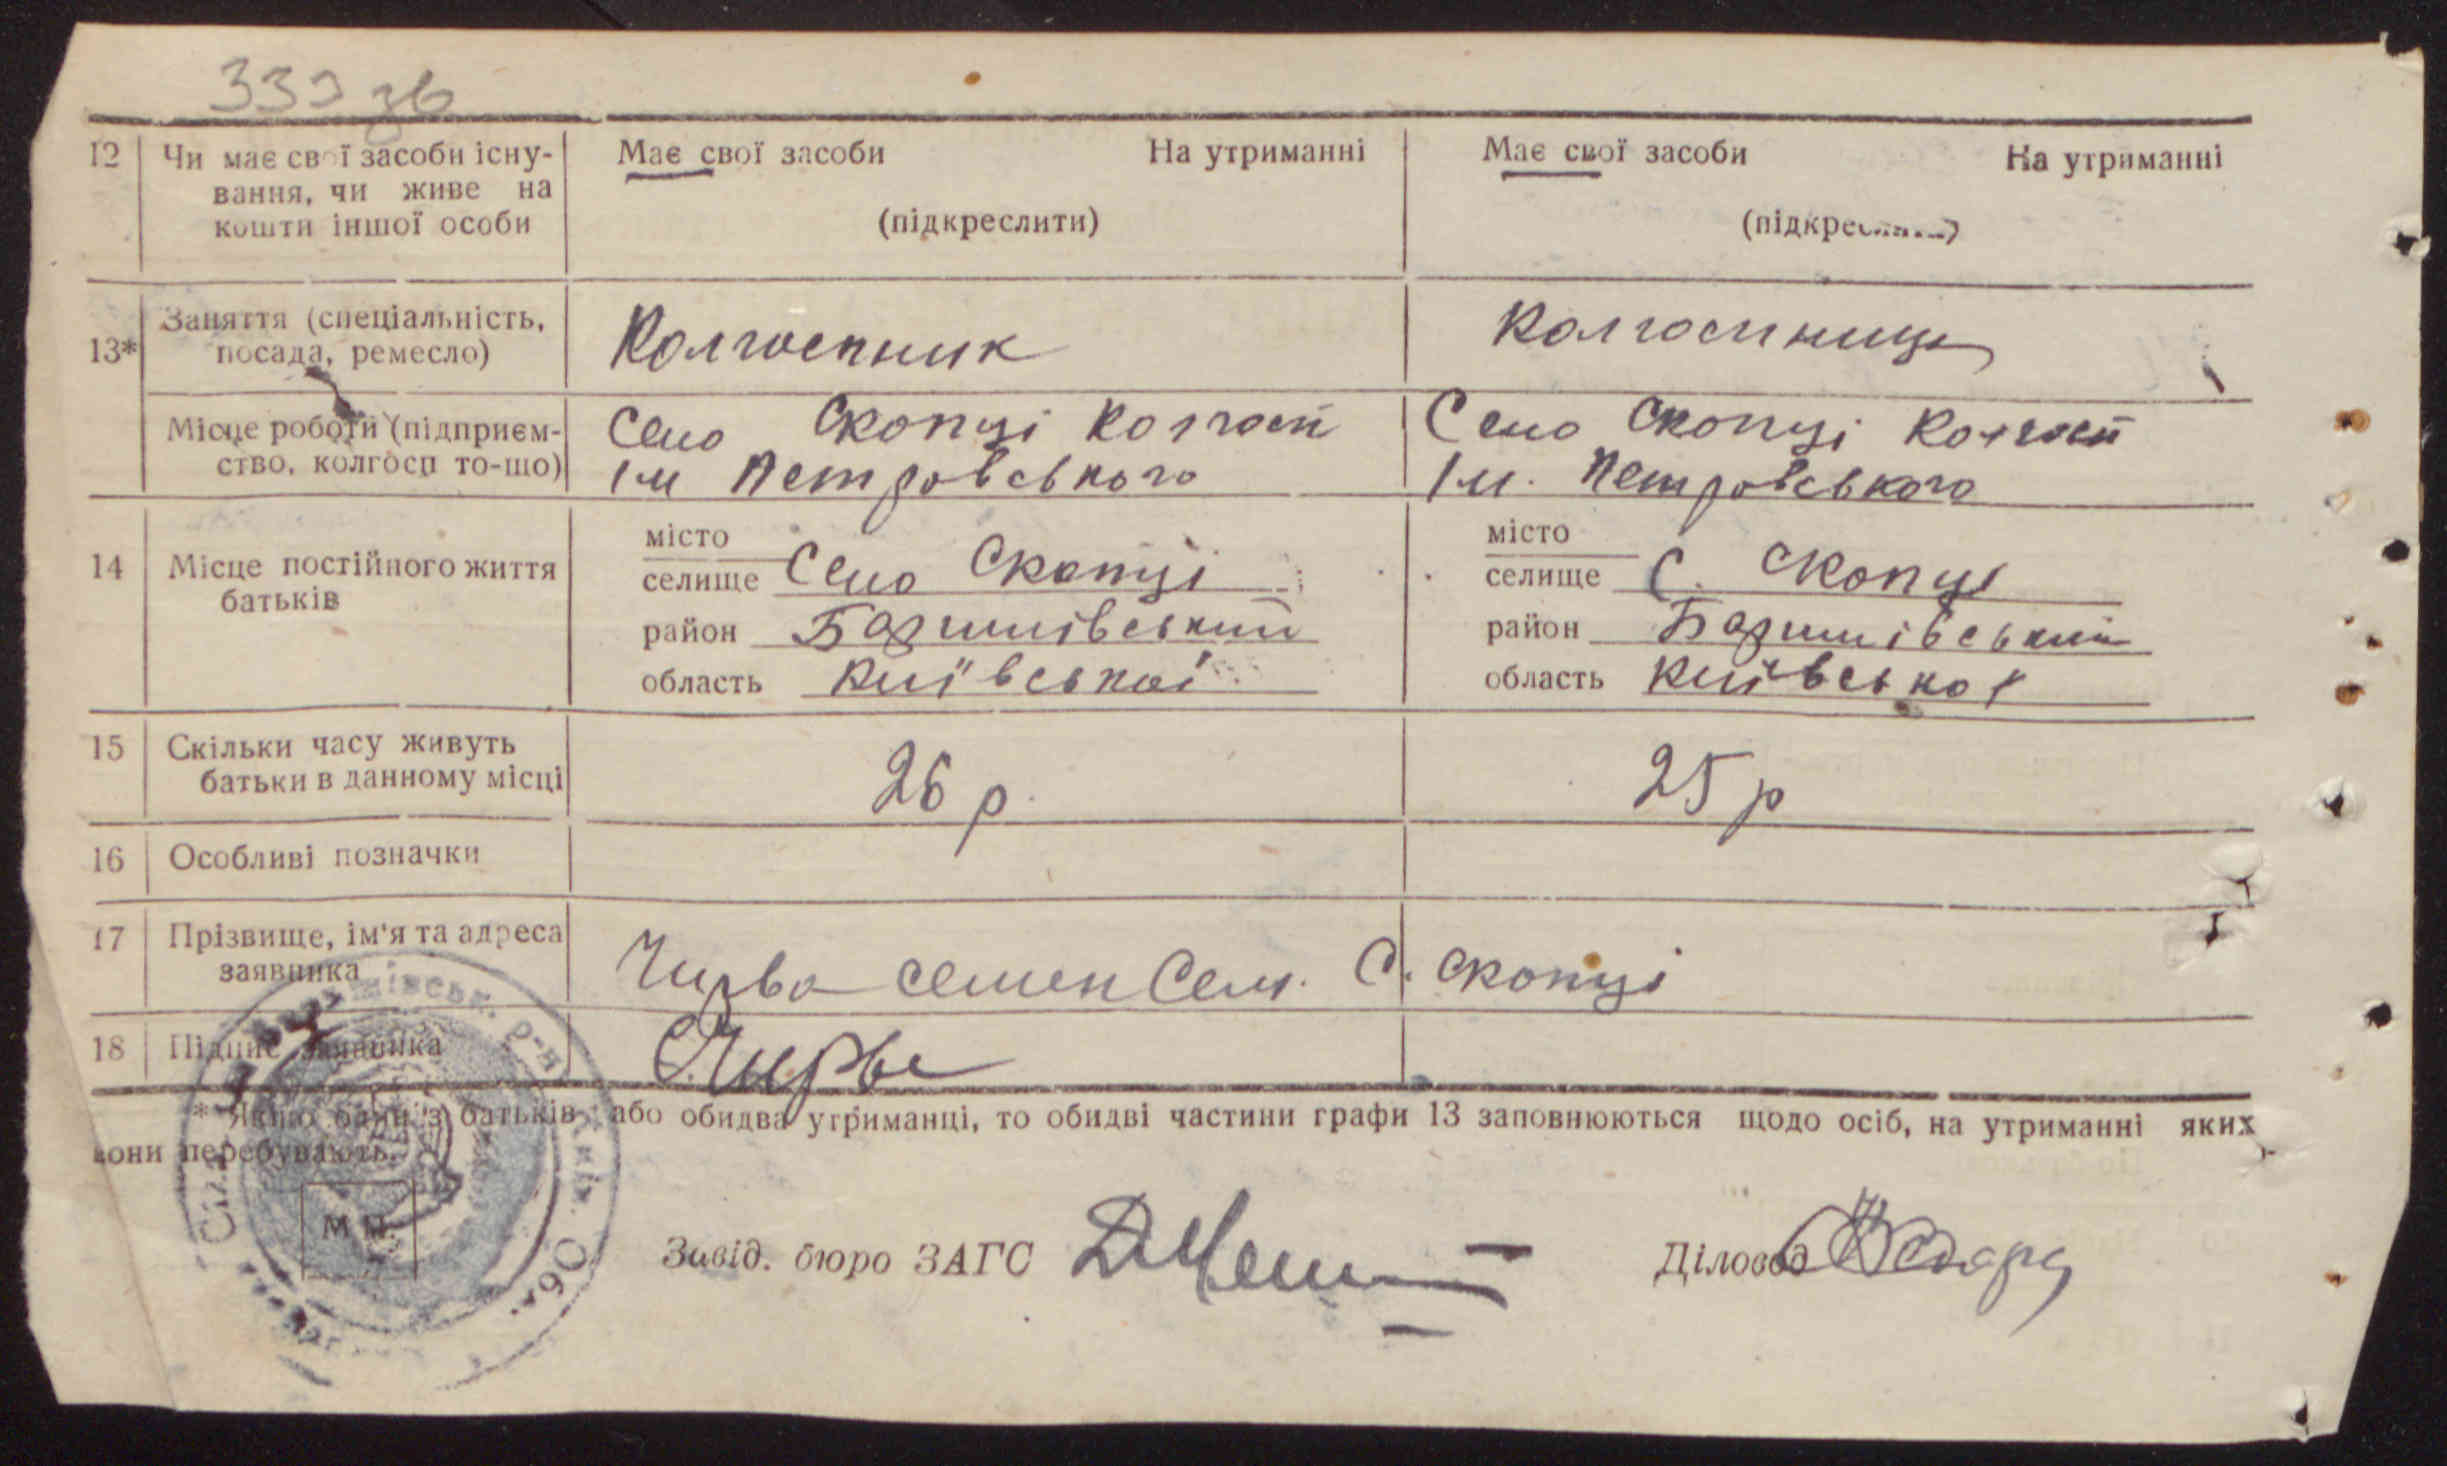 333 зв
12 Чи має свої засоби існу- Має свої засоби На утриманні Має свої засоби На утриманні
вання, чи живе на
кошти іншої особи (підкреслити) (підкреслити)
13* Заняття (спеціальність, Колгоспник Колгоспниця
посада, ремесло)
Місце роботи (підприєм- Село Скопці Колгосп Село Скопці Колгосп
ство, колгосп то-що) Ім Петровського Ім. Петровського
місто місто
14 Місце постійного життя селище Село Скопці селище С. Скопці
батьків
район Баришівський район Баришівський
область Київської область Київської
15 Скільки часу живуть 26 р. 25 р
батьки в данному місці
16 Особливі позначки
17 Прізвище, ім'я та адреса Чирва Семен Сем. С. Скопці
заявника
18 Підпис заявника Чирва
* Якщо один з батьків або обидва утриманці, то обидві частини графи 13 заповнюються щодо осіб, на утриманні яких
вони перебувають.
М П.
Завід. бюро ЗАГС Діловод